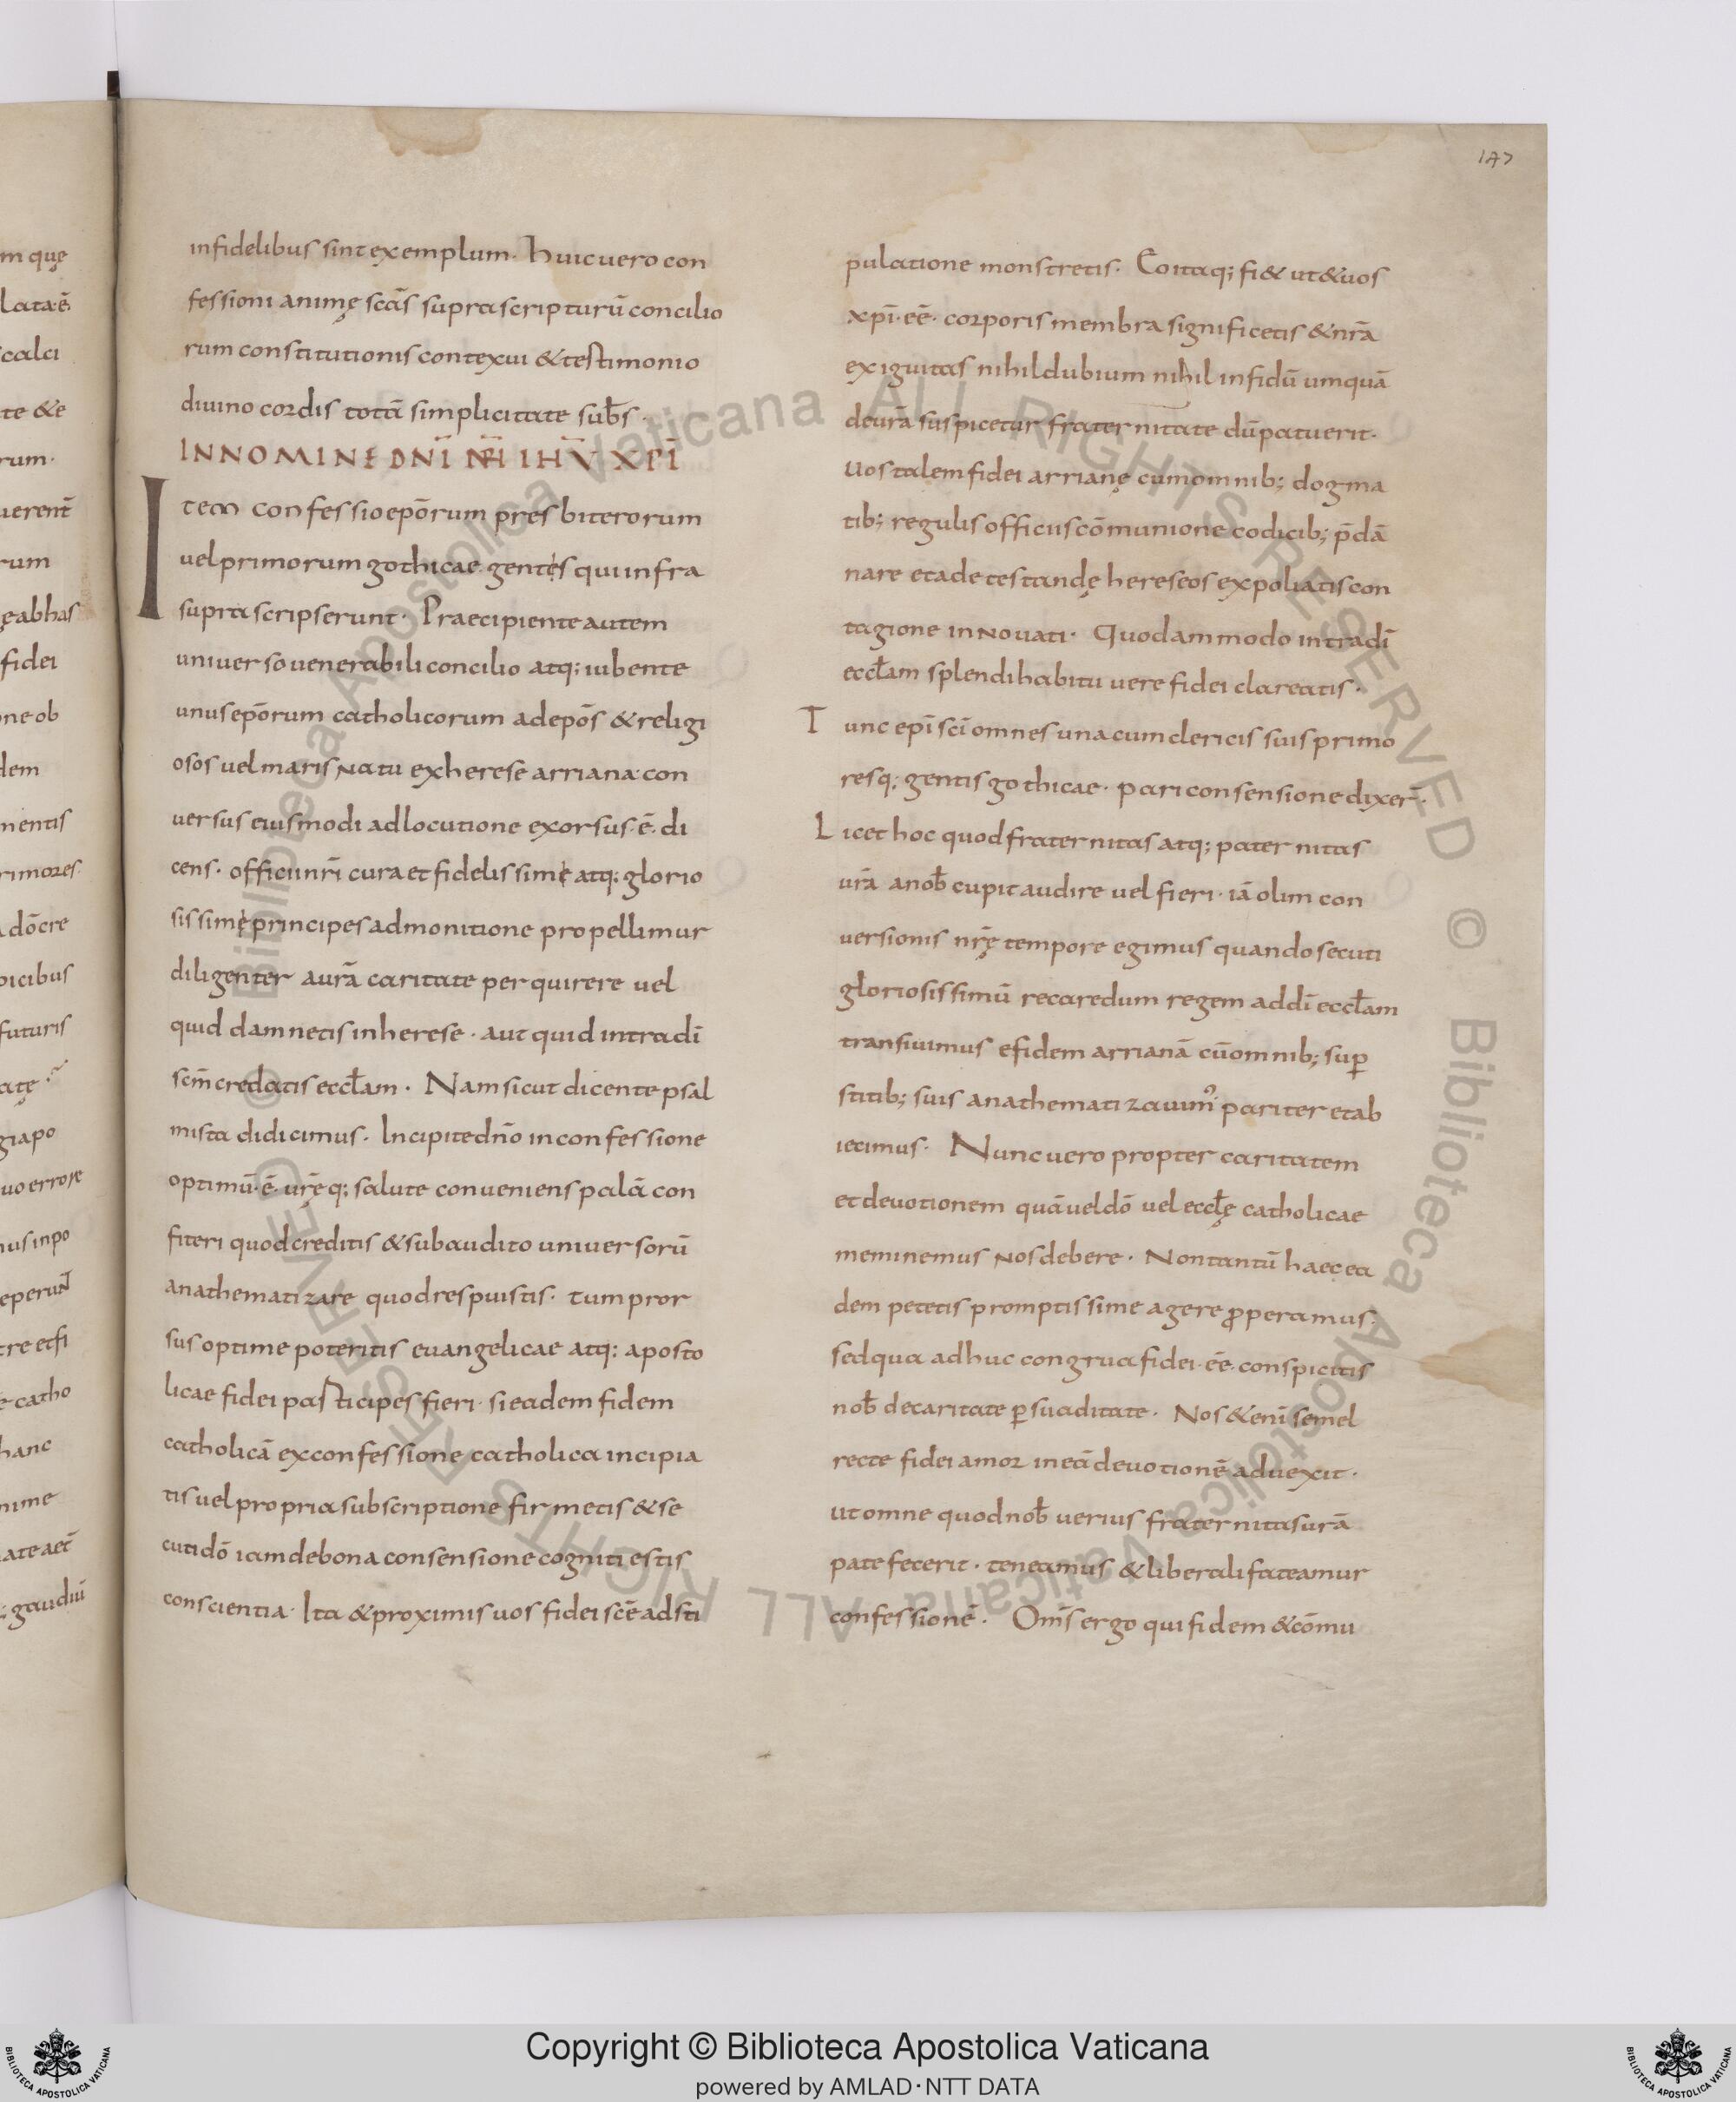 147
m quę
lata ē
calci
te &e
rum·
uerent̄
rum
ęabhas
fidei
ne ob
dem
mentis
rimores·
dōcre
picibus
futuris
atę·
giapo
uo errore
nus inpo
eperun̄
tre etsi
catho
hanc
nime
ate aet̄
; gaudiū
infidelibus sint exemplum· Huic uero con
fessioni animę scās supra scripturū concilio
rum constitutionis contexui & testimonio
diuino cordis totā simplicitate sub̄s·
IN NOMINE DN̄I NR̄I IHV̄ XPĪ
Item confessio epōrum presbiterorum
uel primorum gothicae gentes qui infra
supra scripserunt· Praecipiente autem
uniuerso uenerabili concilio atq; iubente
unus epōrum catholicorum ad epōs & religi
osos uel maris natu ex herese arriana con
uersus eiusmodi adlocutione exorsus·ē· di
cens· officii nr̄i cura et fidelissime atq; glorio
sissimę principes admonitione propellimur
diligenter a ur̄a caritate perquirere uel
quid damnetis in herese· aut quid intra dī
scm̄ credatis eccl̄am· Nam sicut dicente psal
mista didicimus· Incipite dn̄o in confessione
optimū·ē· ur̄ęq; salute conueniens palā con
fiteri quod creditis & sub audito uniuersorū
anathematizare quod respuistis· tum pror
sus optime poteritis euangelicae atq; aposto
licae fidei participes fieri· si eadem fidem
catholicā ex confessione catholica incipia
tis uel propria subscriptione firmetis & se
cuti dō iam de bona consensione cogniti estis
conscientia· Ita & proximis uos fidei scē adsti
pulatione monstretis· Eo itaq; fi& ut & uos
xpī·eē· corporis membra significetis & nr̄a
exiguitas nihil dubium nihil infidū umquā
de ur̄a suspicetur fraternitate dū patuerit·
Uos talem fidei arrianę cum omnib; dogma
tib; regulis officiis cōmunione codicib; p̄dā
nare et adetestandę hereseos expoliatis con
tagione innouati· Quodammodo intra dī
eccl̄am splendi habitu uere fidei clareatis·
Tunc epī scī omnes una cum clericis suis primo
resq; gentis gothicae· pari consensione dixer̄·
Licet hoc quod fraternitas atq; paternitas
ur̄a a nob̄ cupit audire uel fieri· iā olim con
uersionis nr̄ę tempore egimus quando secuti
gloriosissimū recaredum regem ad dī eccl̄am
transiuimus e fidem arrianā cū omnib; sup̄
stitib; suis anathematizauim᾽ pariter et ab
iecimus· Nunc uero propter caritatem
et deuotionem quā uel dō uel eccl̄ę catholicae
meminemus nos debere· Non tantū haec ea
dem petetis promptissime agere ꝓperamus·
sed qua adhuc congrua fidei·eē· conspicitis
nob̄ de caritate ꝑsuaditate· Nos & enī semel
recte fidei amor in eā deuotionē aduexit·
ut omne quod nob̄ uerius fraternitas ur̄a
patefecerit· teneamus & liberali fateamur
confessionē· Om̄s ergo qui fidem & cōmu
Copyright © Biblioteca Apostolica Vaticana
powered by AMLAD·NTT DATA